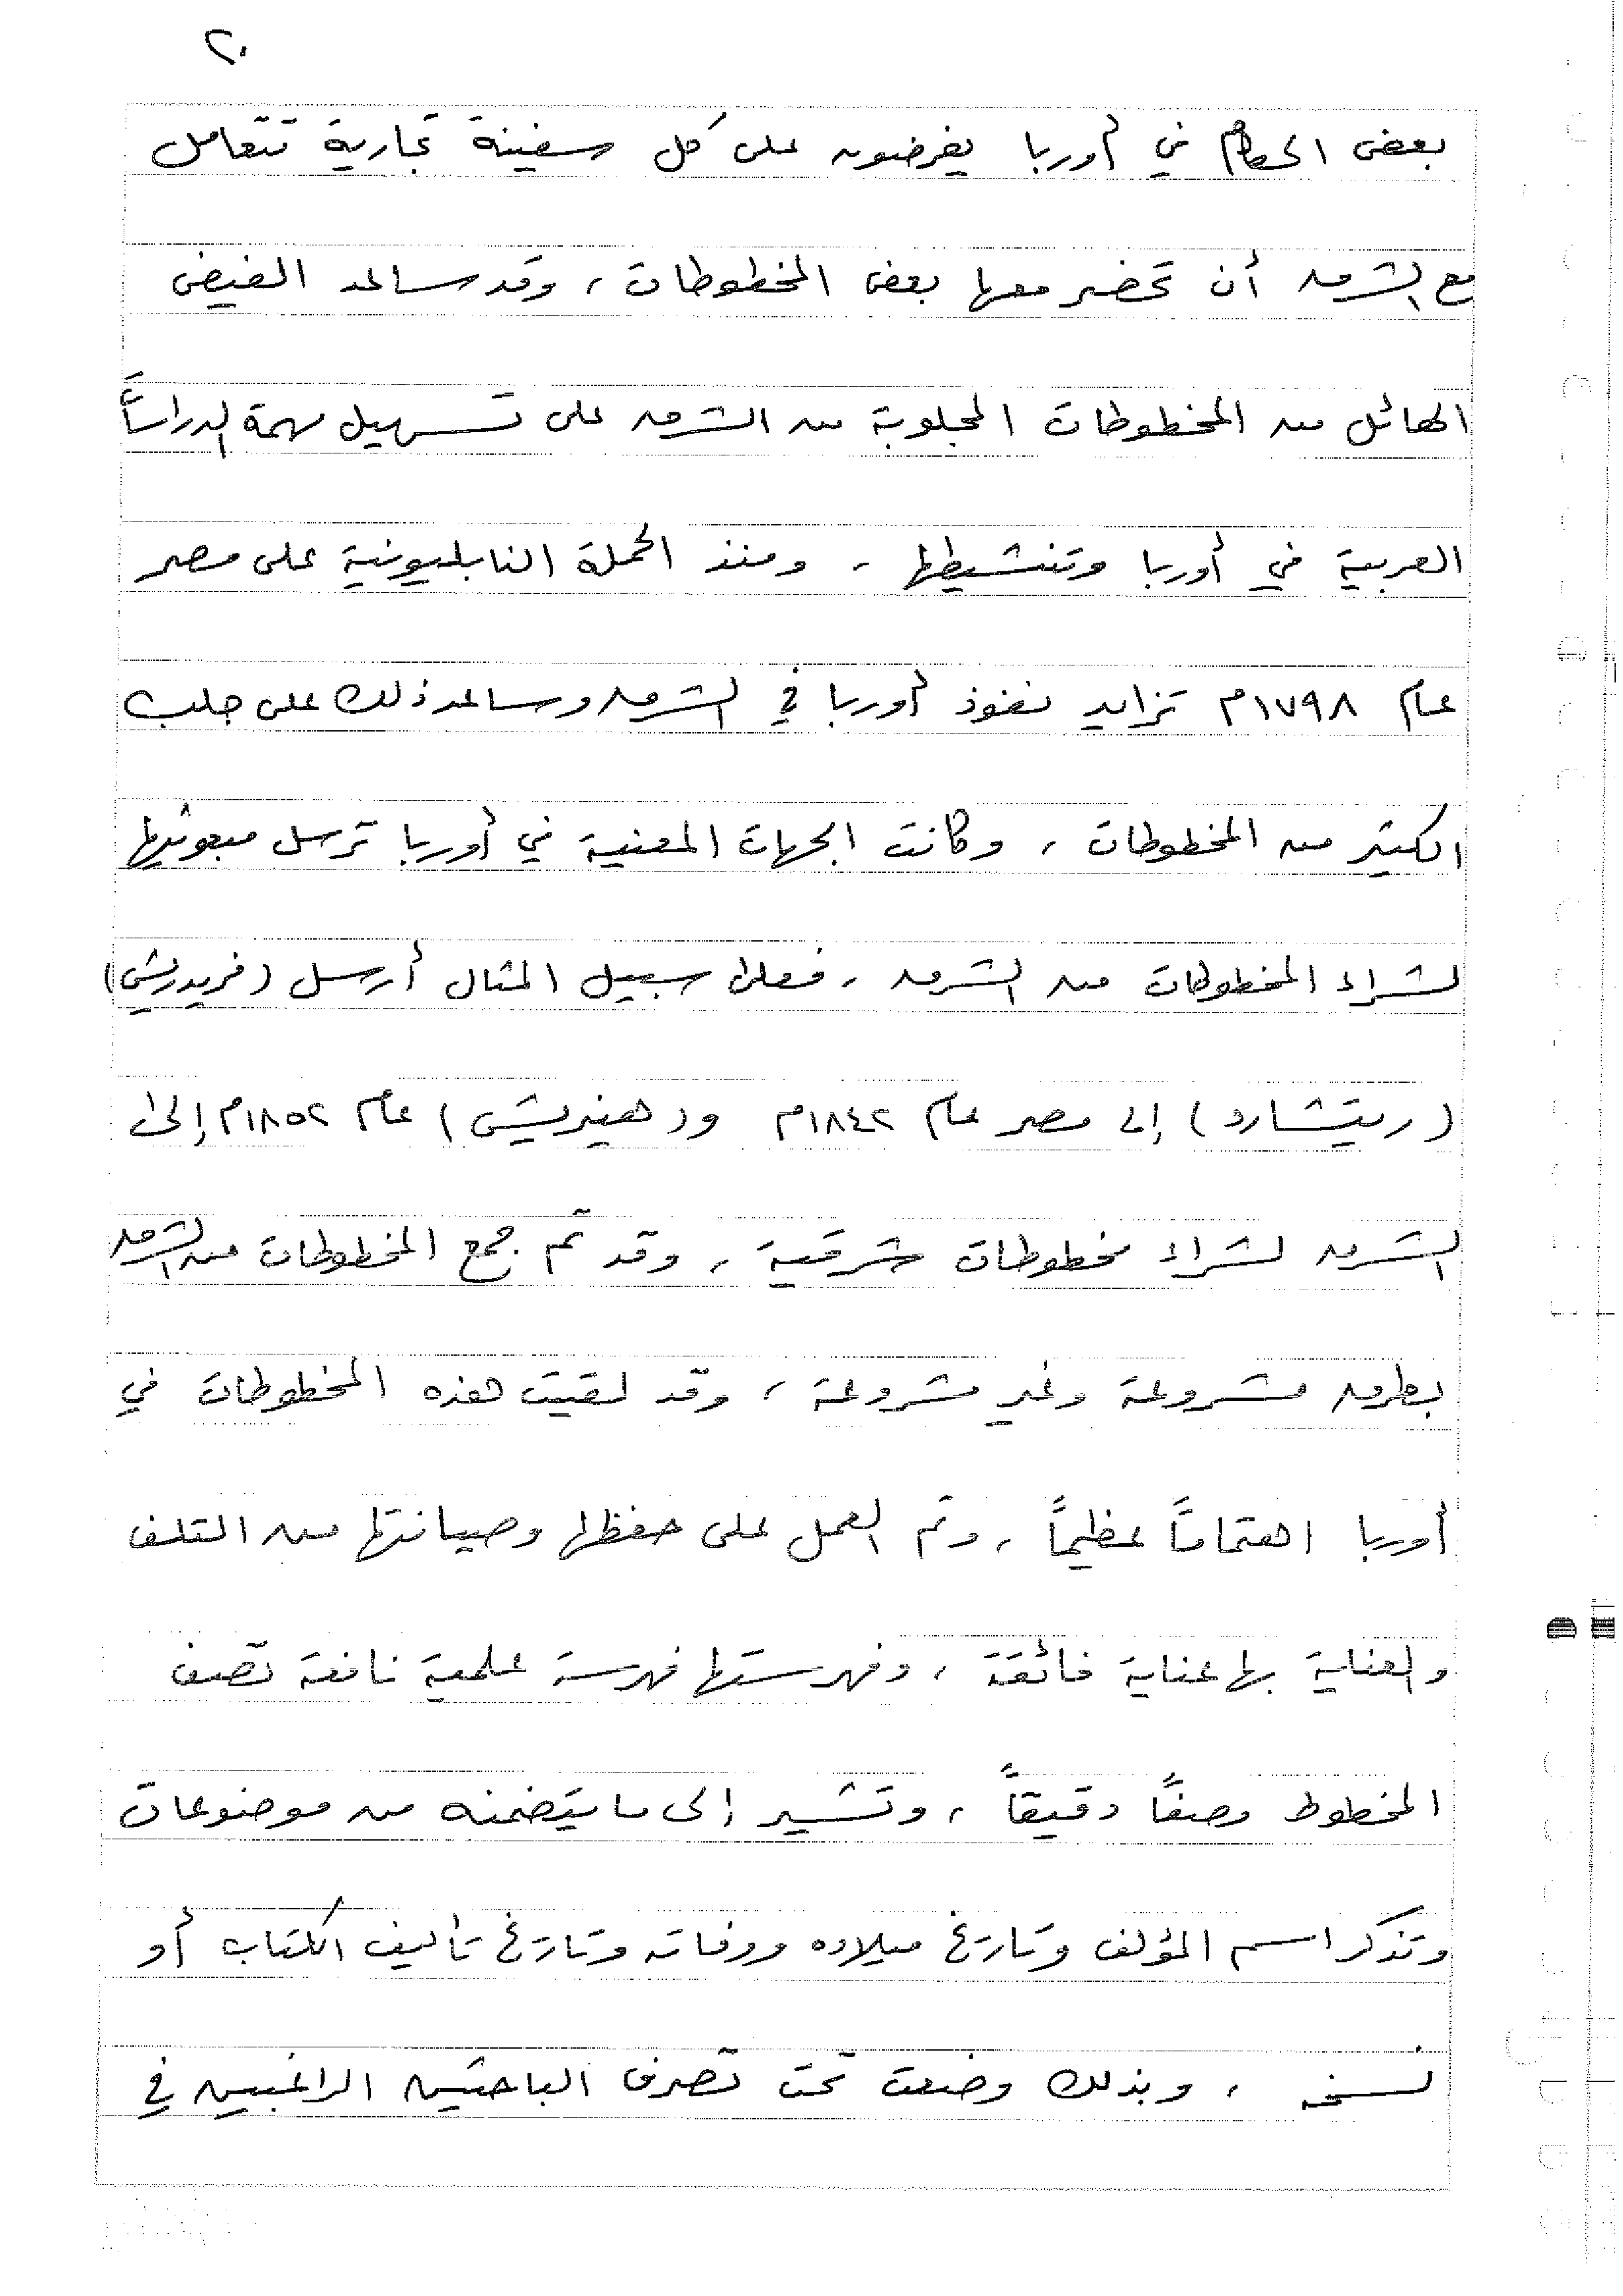 ٢٠
بعض الحكام في أوربا يفرضون على كل سفينة تجارية تتعامل
مع الشرق أن تحضر معها بعض المخطوطات ، وقد ساعد الفيض
الهائل من المخطوطات المجلوبة من الشرق على تسهيل مهمة الدراسات
العربية في أوربا وتنشيطها ، ومنذ الحملة النابليونية على مصر
عام ١٧٩٨م تزايد نفوذ أوربا في الشرق وساعد ذلك على جلب
الكثير من المخطوطات ، وكانت الجهات المعنية في أوربا ترسل مبعوثيها
لشراء المخطوطات من الشرق ، فعلى سبيل المثال أرسل (فريدريش)
(ريتشارد) إلى مصر عام ١٨٤٢م و(هينريش) عام ١٨٥٢م إلى
الشرق لشراء مخطوطات شرقية ، وقد تم جمع المخطوطات من الشرق
بطرق مشروعة وغير مشروعة ، وقد لقيت هذه المخطوطات في
أوربا اهتماماً عظيماً ، وتم العمل على حفظها وصيانتها من التلف
والعناية بها عناية فائقة ، وفهرستها فهرسة علمية نافعة تصف
المخطوط وصفاً دقيقاً ، وتشير إلى ما يتضمنه من موضوعات
وتذكر اسم المؤلف وتاريخ ميلاده ووفاته وتاريخ تأليف الكتاب أو
نسخه ، وبذلك وضعت تحت تصرف الباحثين الراغبين في